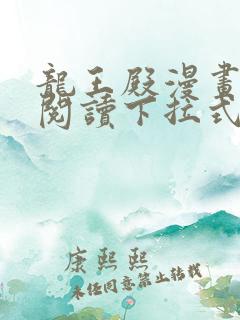 龍王殿漫畫
閱讀下拉式
康熙熙
未經同意禁止轉載